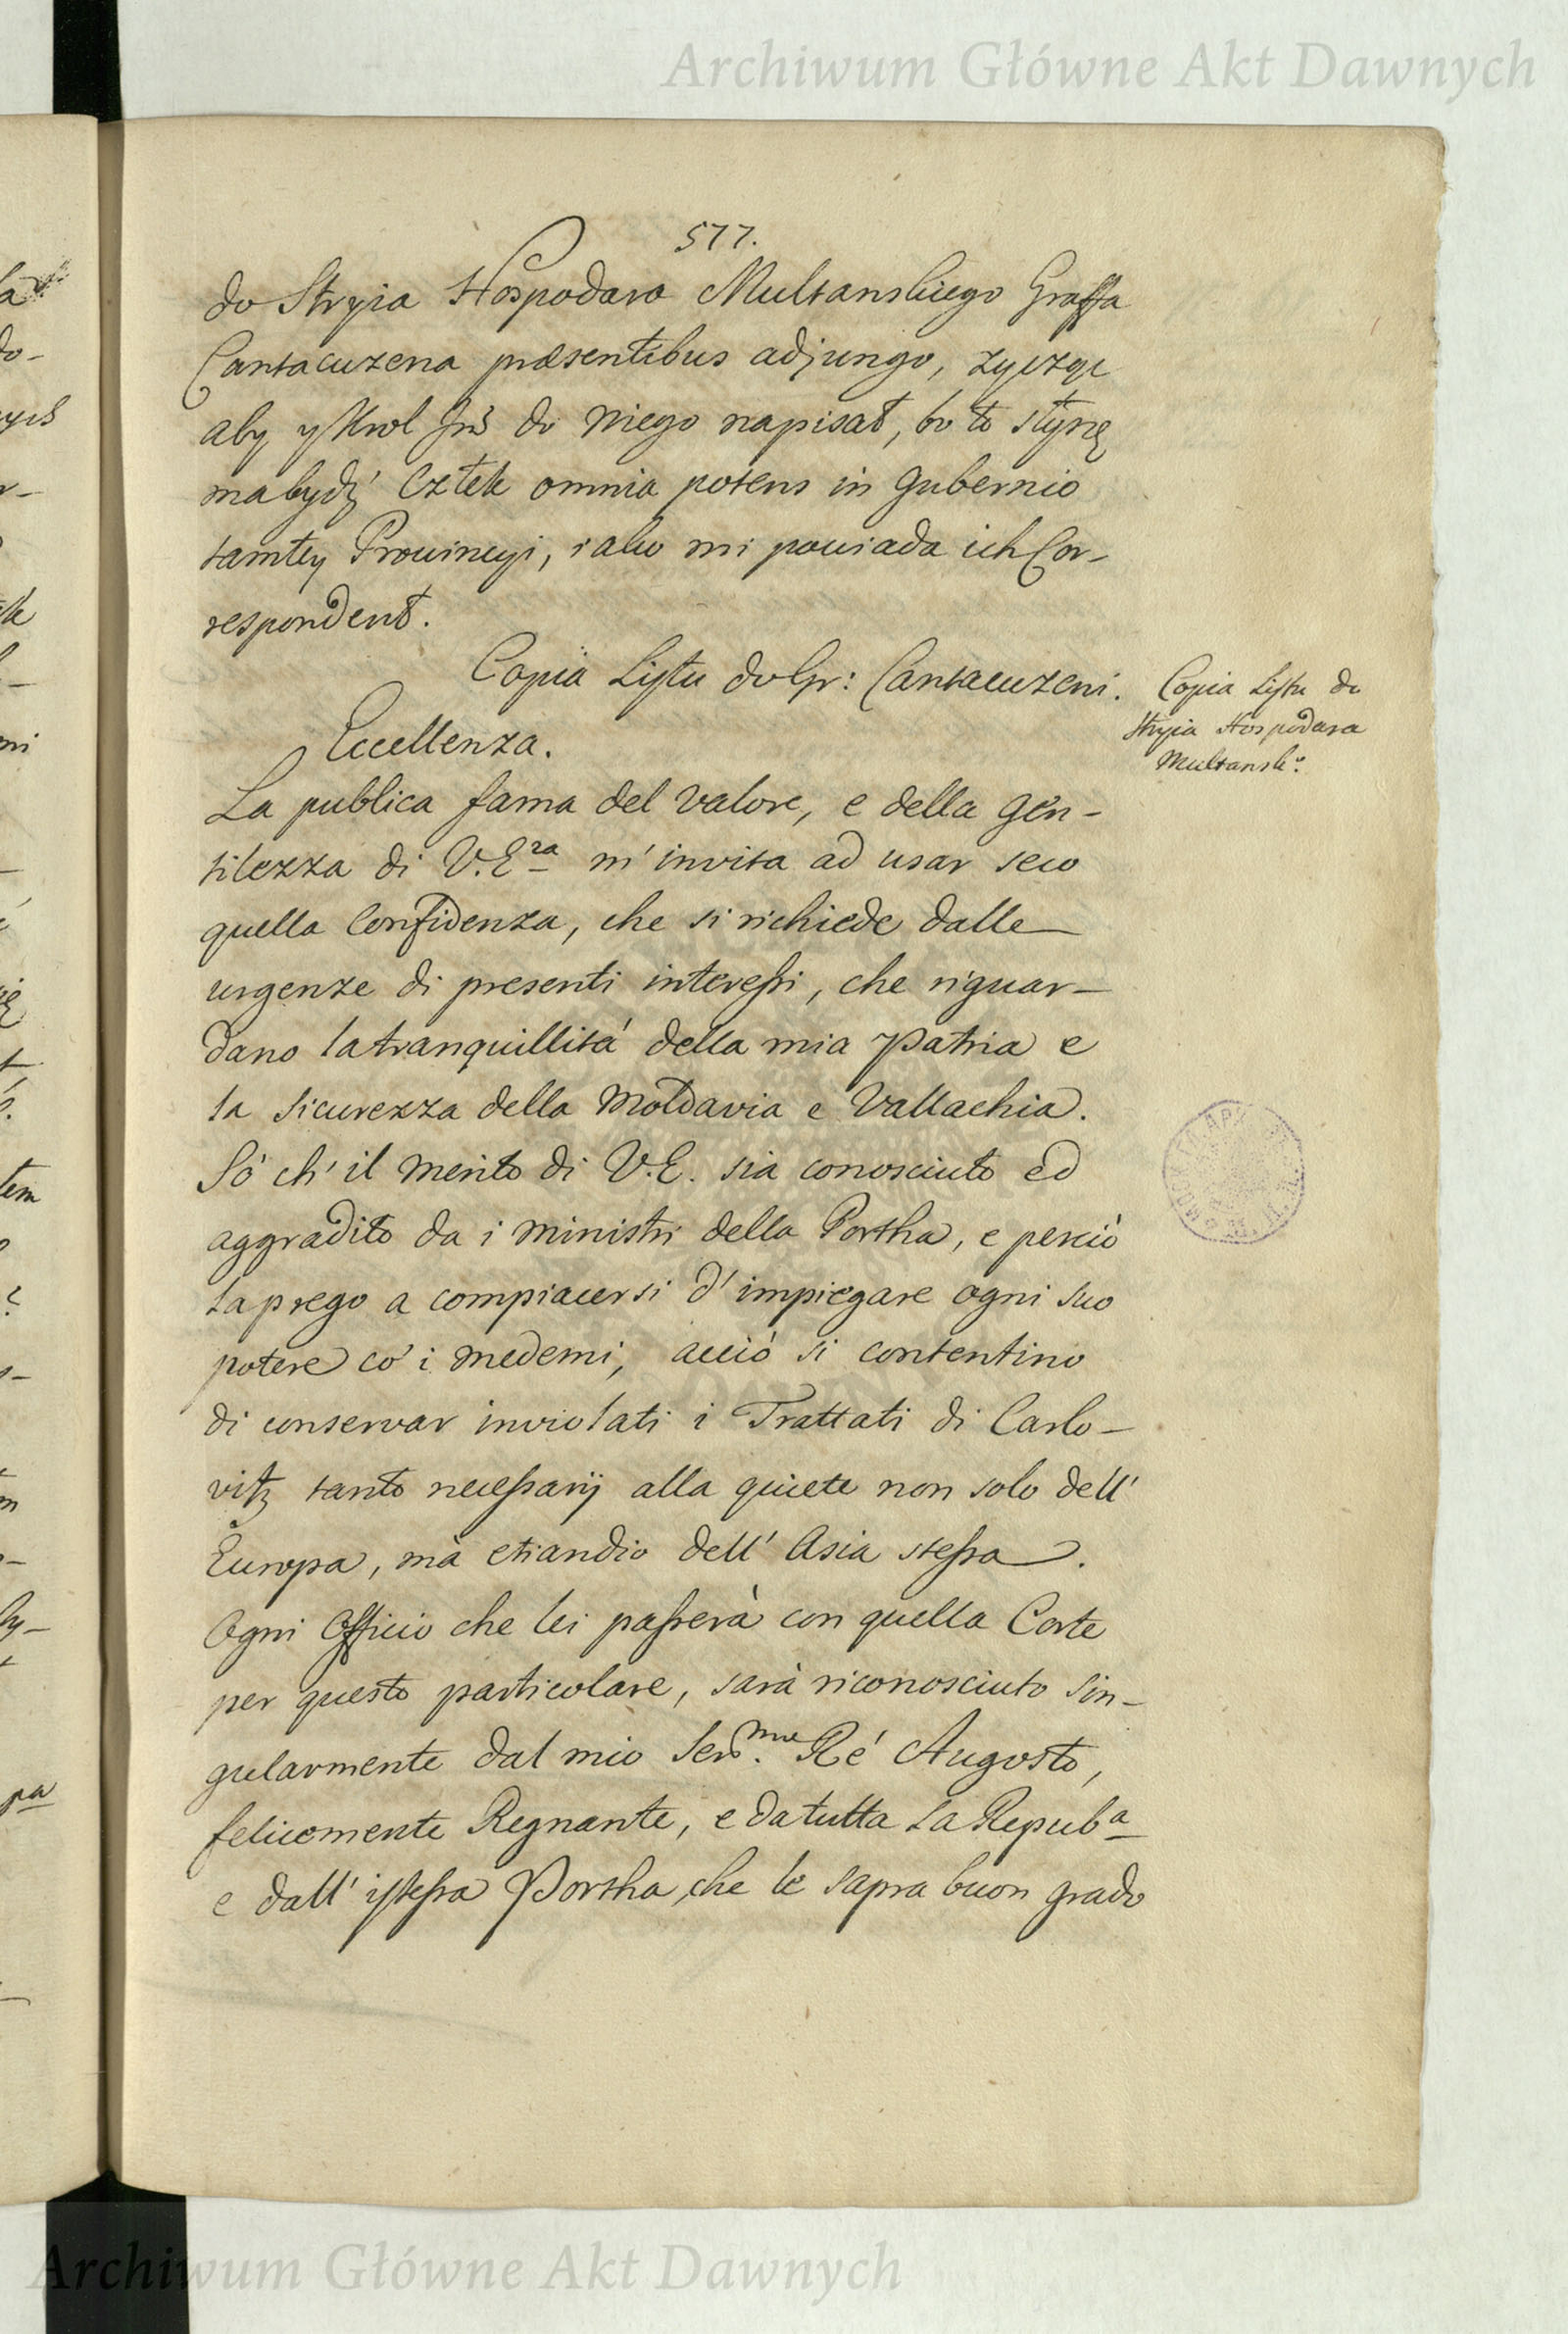 Archiwum Główne Akt Dawnych
577.
do Stryia Hospodara Multanskiego Graffa
Cantacuzena præsentibus adjungo, zycząc
aby y Krol Jmć do niego napisał, bo to słyszę
ma bydź Człek omnia potens in Gubernio
tamtey Prowincyi, iako mi powiada ich Cor-
respondent.
Copia Listu do Gr: Cantacuzeni.
Copia Listu do
Stryia Hospodara
Multansko:
Eccellenza.
La publica fama del valore, e della gen-
tilezza di V.Eza m'invita ad usar seco
quella Confidenza, che si richiede dalle
urgenze di presenti interessi, che riguar-
dano la tranquillità della mia Patria e
la sicurezza della Moldavia e Vallachia.
Sò ch'il merito di V.E. sia conosciuto ed
aggradito da i ministri della Portha, e perciò
la prego a compiacersi d'impiegare ogni suo
potere co' i medemi, acciò si contentino
di conservar inviolati i Trattati di Carlo-
vitz tanto necessarij alla quiete non solo dell'
Europa, mà etiandio dell' Asia stessa.
Ogni Officio che lei passerà con quella Corte
per questo particolare, sarà riconosciuto sin-
gularmente dal mio Sermo. Ré Augusto,
felicemente Regnante, e da tutta la Repuba
e dall' istessa Portha, che le sapra buon grado
Archiwum Główne Akt Dawnych